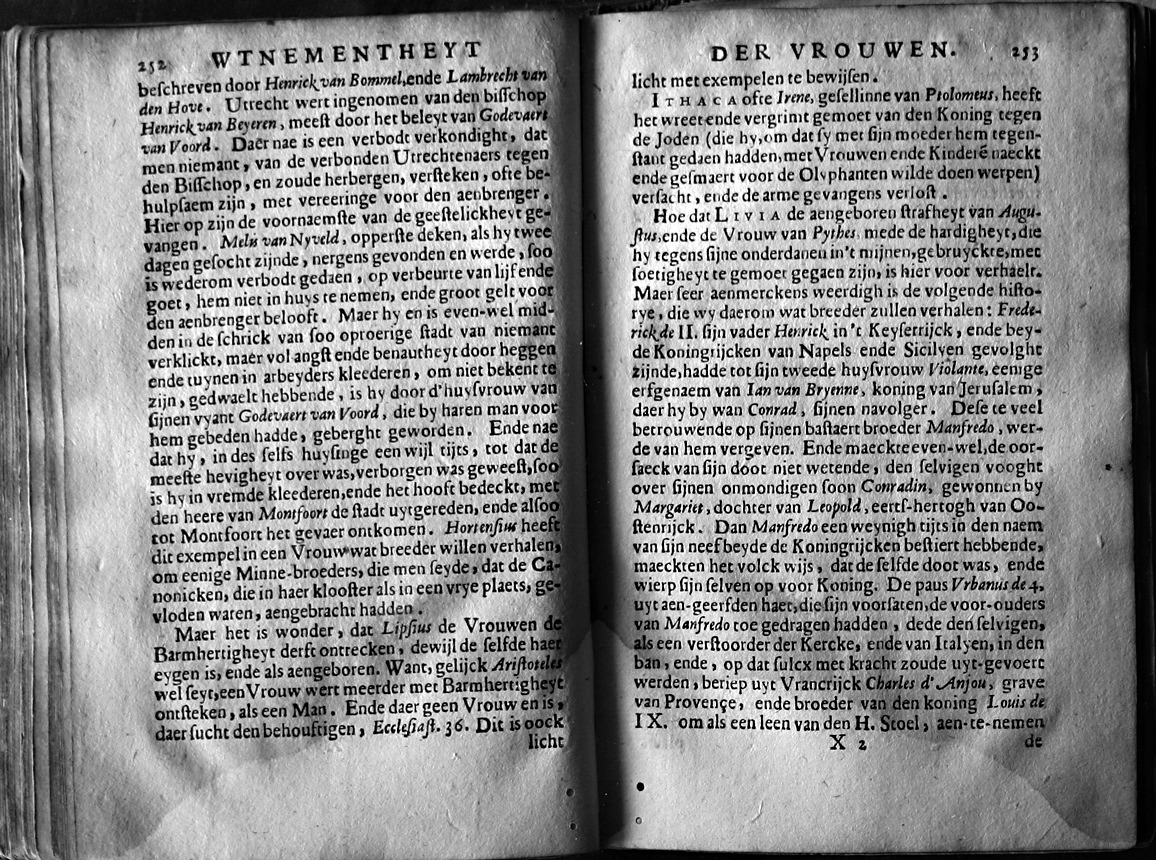 252 WTNEMENTHEYT
beſchreven door Henrick van Bommel, ende Lambrecht van
den Hove. Utrecht wert ingenomen van den biſſchop
Henrick van Beyeren, meeſt door het beleyt van Godevaert
van Voord. Daer nae is een verbodt verkondight, dat
men niemant, van de verbonden Utrechtenaers tegen
den Biſſchop, en zoude herbergen, verſteken, ofte be-
hulpſaem zijn, met vereeringe voor den aenbrenger.
Hier op zijn de voornaemſte van de geeſtelickheyt ge-
vangen. Melis van Nyveld, opperſte deken, als hy twee
dagen geſocht zijnde, nergens gevonden en werde, ſoo
is wederom verbodt gedaen, op verbeurte van lijf ende
goet, hem niet in huys te nemen, ende groot gelt voor
den aenbrenger belooft. Maer hy en is even-wel mid-
den in de ſchrick van ſoo oproerige ſtadt van niemant
verklickt, maer vol angſt ende benautheyt door heggen
ende tuynen in arbeyders kleederen, om niet bekent te
zijn, gedwaelt hebbende, is hy door d'huyſvrouw van
ſijnen vyant Godevaert van Voord, die by haren man voor
hem gebeden hadde, geberght geworden. Ende nae
dat hy, in des ſelfs huyſinge een wijl tijts, tot dat de
meeſte hevigheyt over was, verborgen was geweeſt, ſoo
is hy in vremde kleederen, ende het hooft bedeckt, met
den heere van Montfoort de ſtadt uytgereden, ende alſoo
tot Montfoort het gevaer ontkomen. Hortenſius heeft
dit exempel in een Vrouw wat breeder willen verhalen,
om eenige Minne-broeders, die men ſeyde, dat de Ca-
nonicken, die in haer klooſter als in een vrye plaets, ge-
vloden waren, aengebracht hadden.
Maer het is wonder, dat Lipſius de Vrouwen de
Barmhertigheyt derft ontrecken, dewijl de ſelfde haer
eygen is, ende als aengeboren. Want, gelijck Ariſtoteles
wel ſeyt, een Vrouw wert meerder met Barmhertigheyt
ontſteken, als een Man. Ende daer geen Vrouw en is,
daer ſucht den behouftigen, Eccleſiaſt. 36. Dit is oock
licht
DER VROUWEN. 253
licht met exempelen te bewijſen.
ITHACA ofte Irene, geſellinne van Ptolomeus, heeft
het wreet ende vergrimt gemoet van den Koning tegen
de Joden (die hy, om dat ſy met ſijn moeder hem tegen-
ſtant gedaen hadden, met Vrouwen ende Kinderē naeckt
ende geſmaert voor de Olyphanten wilde doen werpen)
verſacht, ende de arme gevangens verloſt.
Hoe dat LIVIA de aengeboren ſtrafheyt van Augu-
ſtus, ende de Vrouw van Pythes mede de hardigheyt, die
hy tegens ſijne onderdanen in't mijnen, gebruyckte, met
ſoetigheyt te gemoet gegaen zijn, is hier voor verhaelt.
Maer ſeer aenmerckens weerdigh is de volgende hiſto-
rye, die wy daerom wat breeder zullen verhalen: Frede-
rick de II. ſijn vader Henrick in't Keyſerrijck, ende bey-
de Koningrijcken van Napels ende Sicilyen gevolght
zijnde, hadde tot ſijn tweede huyſvrouw Violante, eenige
erfgenaem van Ian van Bryenne, koning van Jeruſalem,
daer hy by wan Conrad, ſijnen navolger. Deſe te veel
betrouwende op ſijnen baſtaert broeder Manfredo, wer-
de van hem vergeven. Ende maeckte even-wel, de oor-
ſaeck van ſijn doot niet wetende, den ſelvigen vooght
over ſijnen onmondigen ſoon Conradin, gewonnen by
Margariet, dochter van Leopold, eertſ-hertogh van Oo-
ſtenrijck. Dan Manfredo een weynigh tijts in den naem
van ſijn neef beyde de Koningrijcken beſtiert hebbende,
maeckten het volck wijs, dat de ſelfde doot was, ende
wierp ſijn ſelven op voor Koning. De paus Vrbanus de 4,
uyt aen-geerfden haet, die ſijn voorſaten, de voor-ouders
van Manfredo toe gedragen hadden, dede den ſelvigen,
als een verſtoorder der Kercke, ende van Italyen, in den
ban, ende, op dat ſulcx met kracht zoude uyt-gevoert
werden, beriep uyt Vrancrijck Charles d'Anjou, grave
van Provençe, ende broeder van den koning Louis de
IX. om als een leen van den H. Stoel, aen-te-nemen
X 2 de